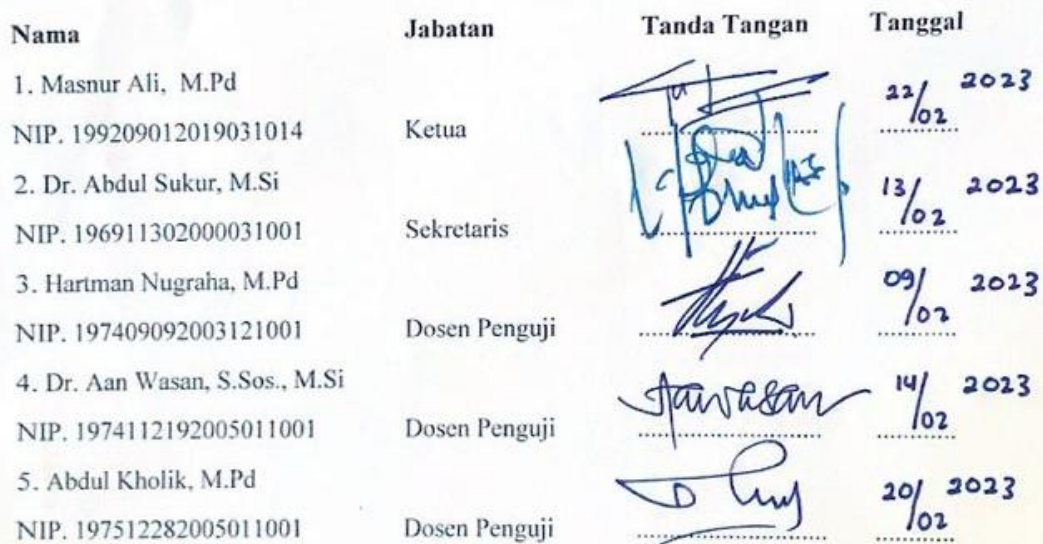 Nama Jabatan Tanda Tangan Tanggal
1. Masnur Ali, M.Pd
NIP. 199209012019031014 Ketua 22/02 2023
2. Dr. Abdul Sukur, M.Si
NIP. 196911302000031001 Sekretaris 13/02 2023
3. Hartman Nugraha, M.Pd
NIP. 197409092003121001 Dosen Penguji 09/02 2023
4. Dr. Aan Wasan, S.Sos., M.Si
NIP. 1974112192005011001 Dosen Penguji 14/02 2023
5. Abdul Kholik, M.Pd
NIP. 197512282005011001 Dosen Penguji 20/02 2023